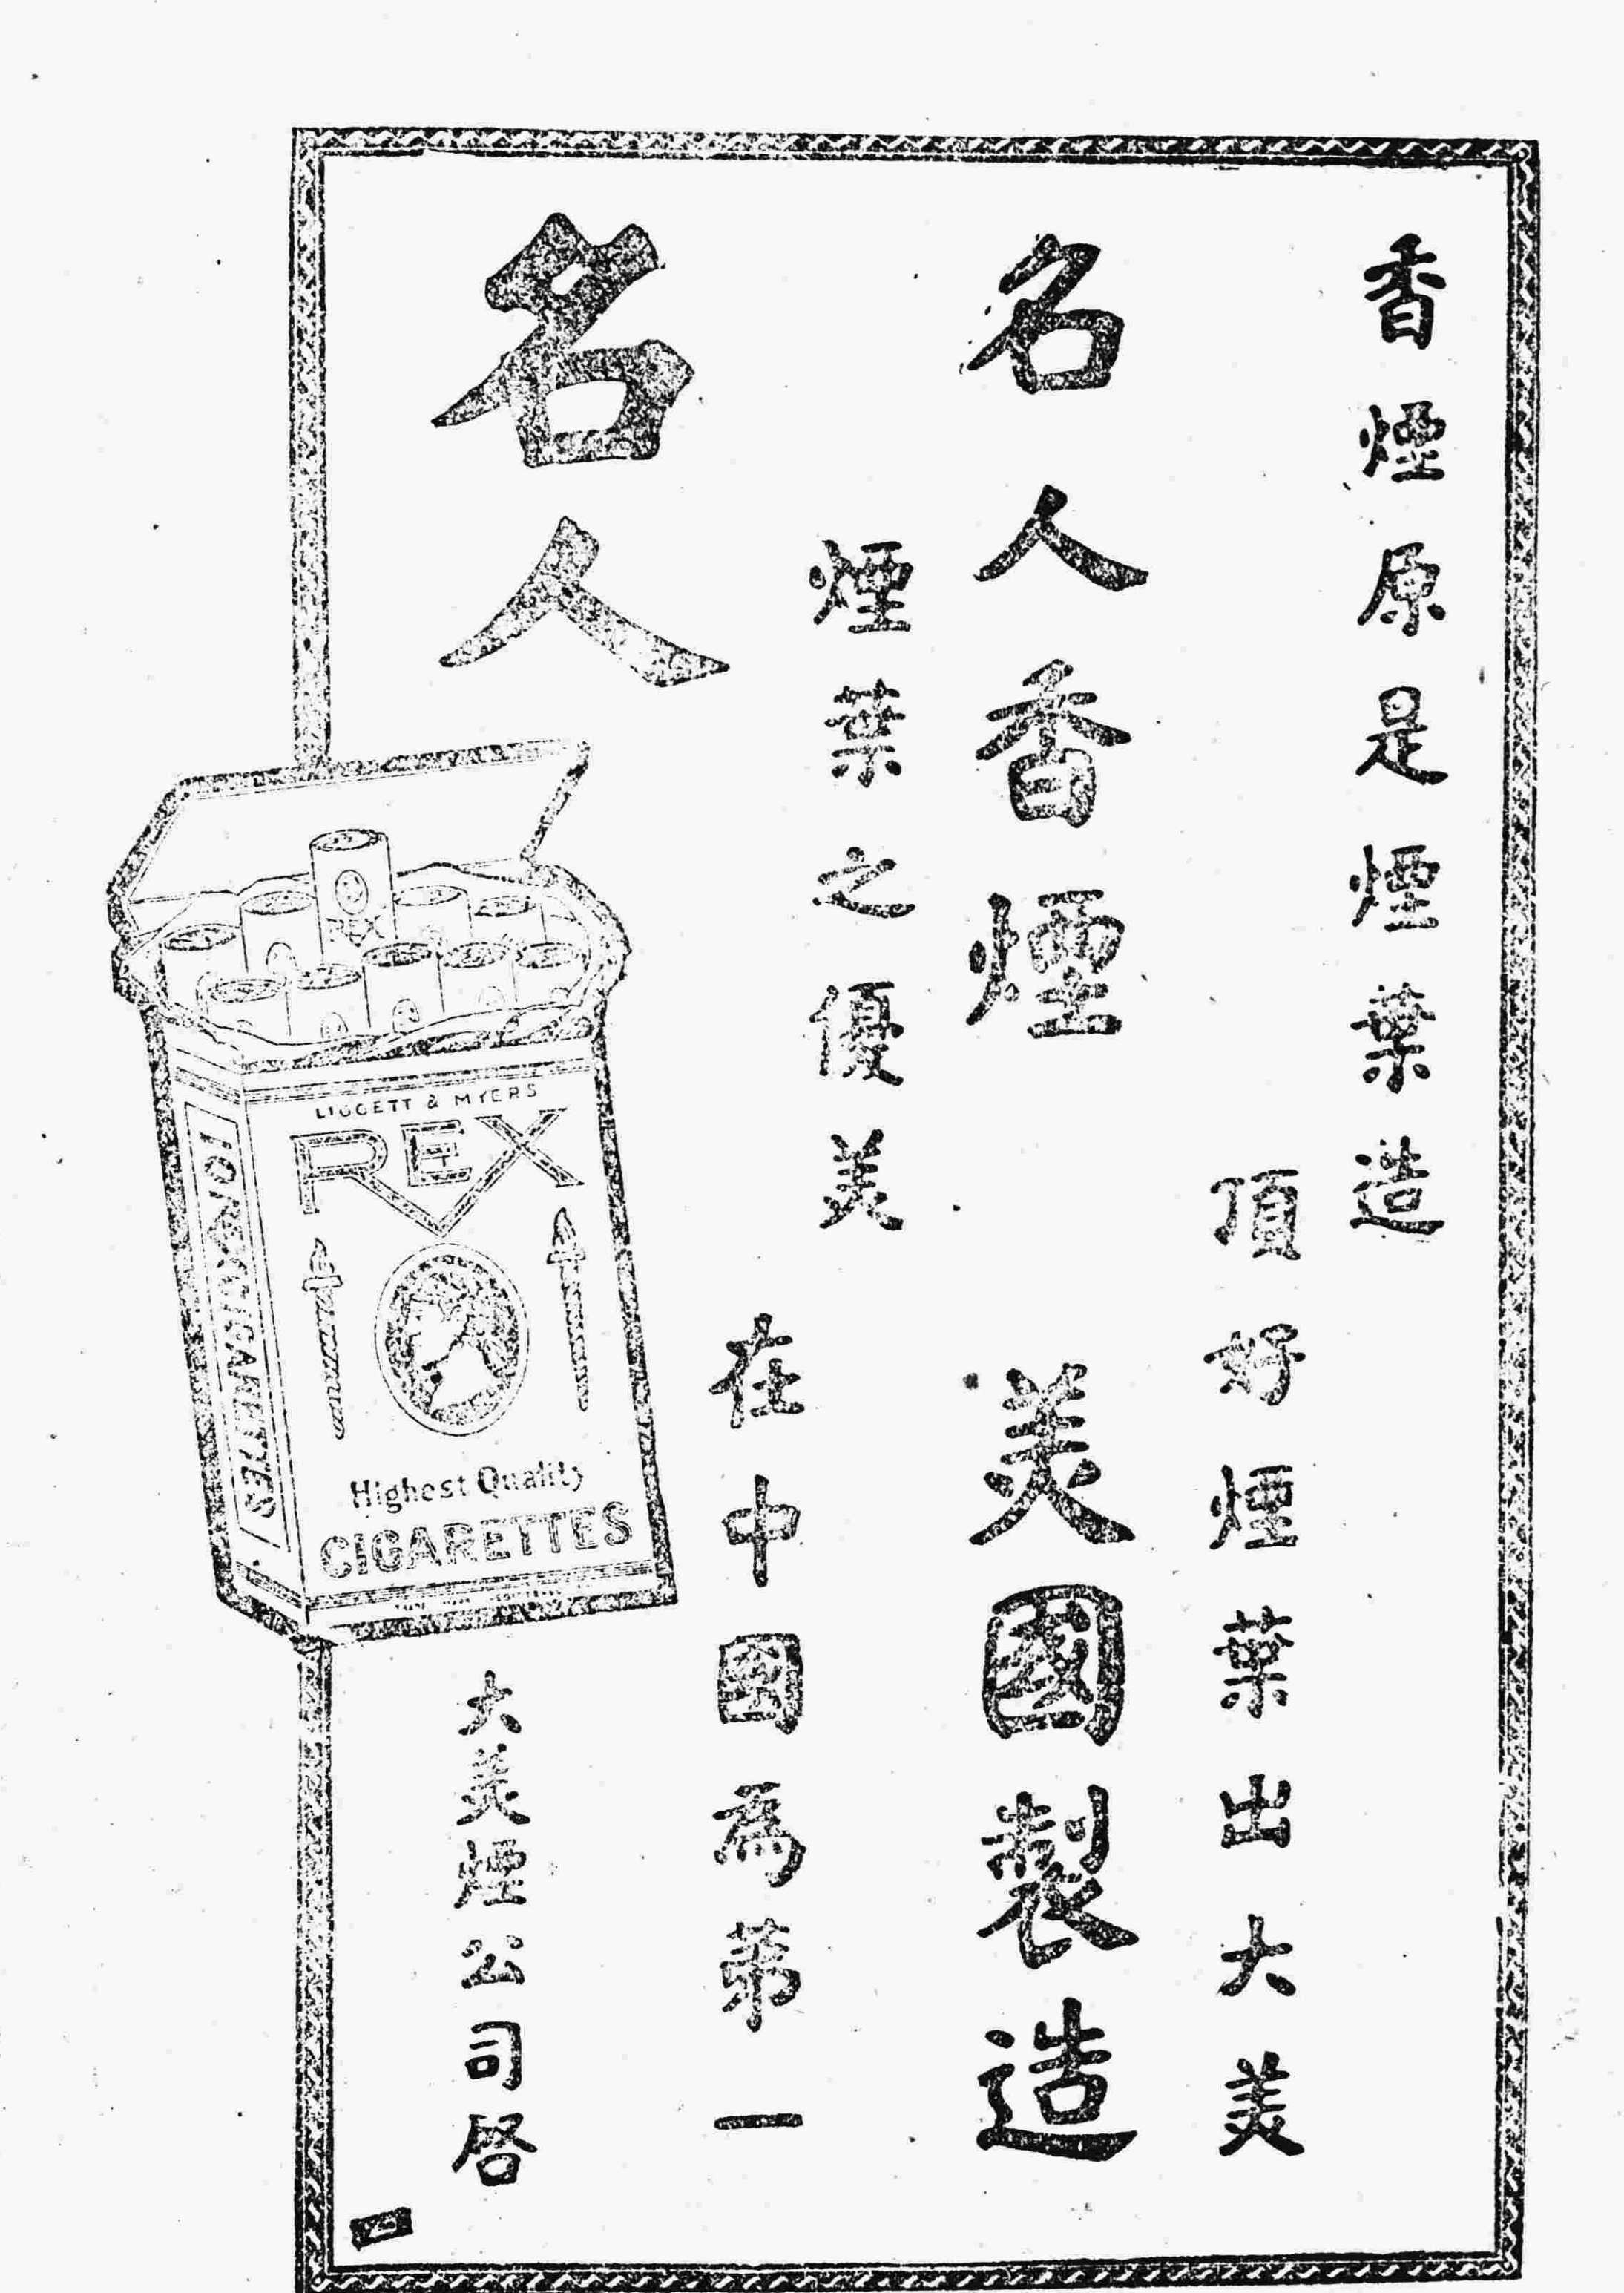 香煙原是煙葉造
頂好煙葉出大美
名人香煙 美國製造
煙葉之優美
在中國為第一
名人
LIGGETT & MYERS
REX
Highest Quality
CIGARETTES
10 REX CIGARETTES
REX
大美煙公司啓